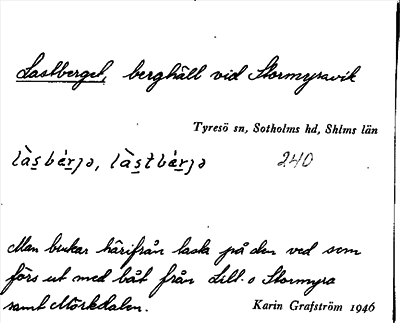 Lastberget, berghäll vid Stormyravik
Tyresö sn, Sotholms hd, Shlms län
làs̱bèṟjə, làs̱tbèṟjə 240
Man brukar härifrån lasta på den ved som
förs ut med båt från Lill- o Stormyra
samt Mörkdalen.
Karin Grafström 1946